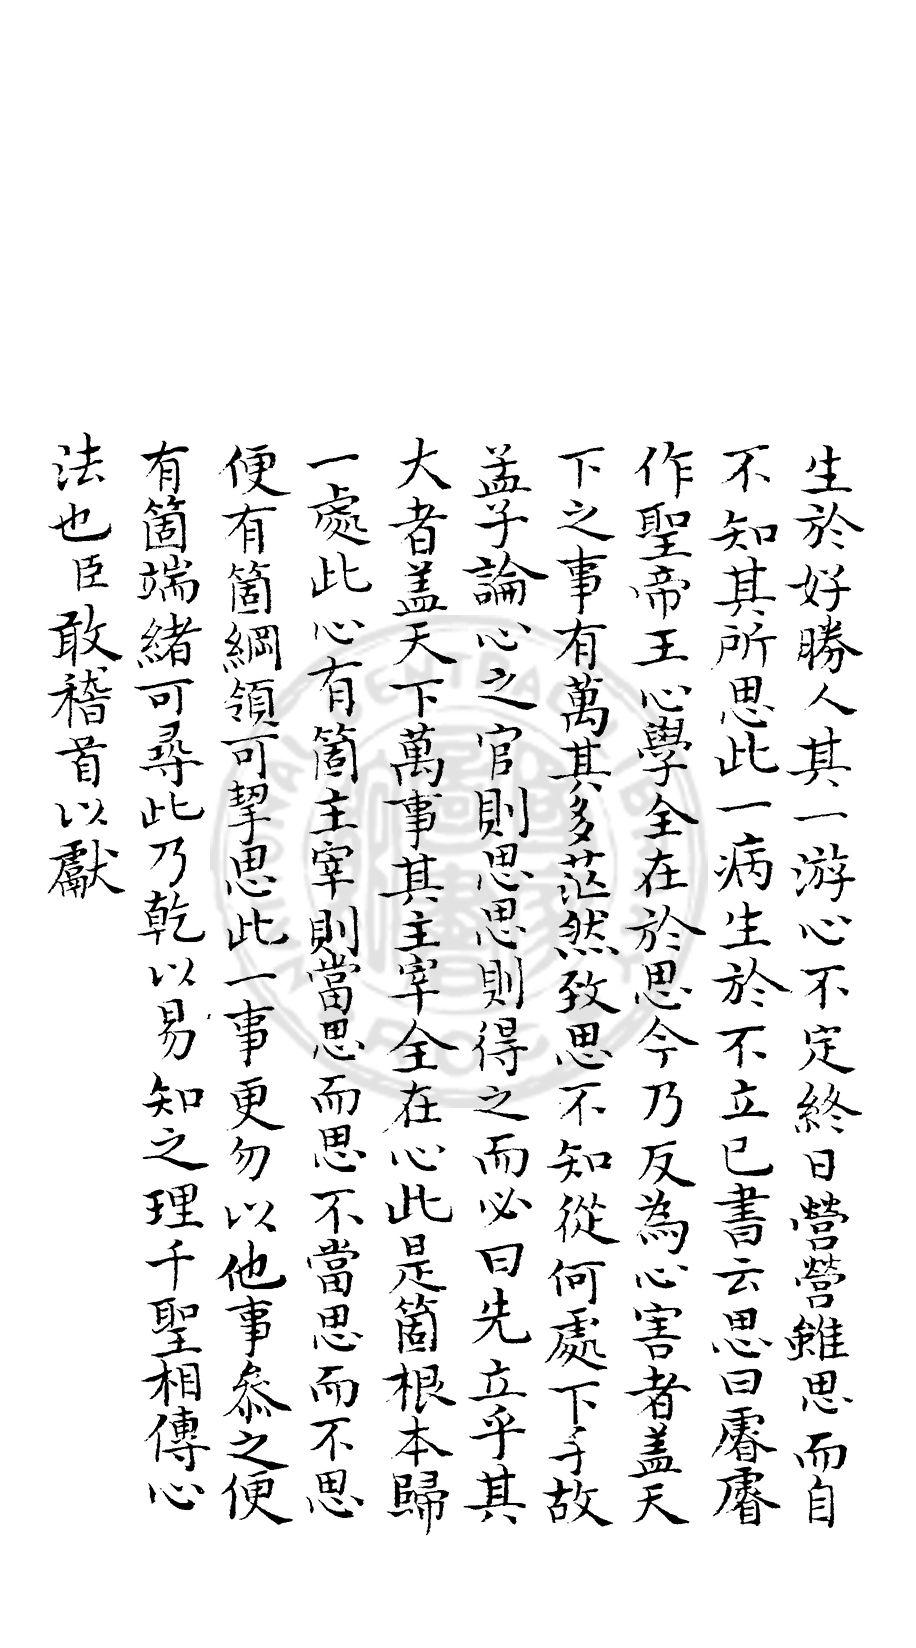 生於好勝人其一游心不定終日營營雖思而自
不知其所思此一病生於不立已書云思曰睿睿
作聖帝王心學全在於思今乃反為心害者盖天
下之事有萬其多茫然致思不知從何處下手故
孟子論心之官則思思則得之而必曰先立乎其
大者盖天下萬事其主宰全在心此是箇根本歸
一處此心有箇主宰則當思而思不當思而不思
便有箇綱領可挈思此一事更勿以他事叅之便
有箇端緒可尋此乃乾以易知之理千聖相傳心
法也臣敢稽首以獻